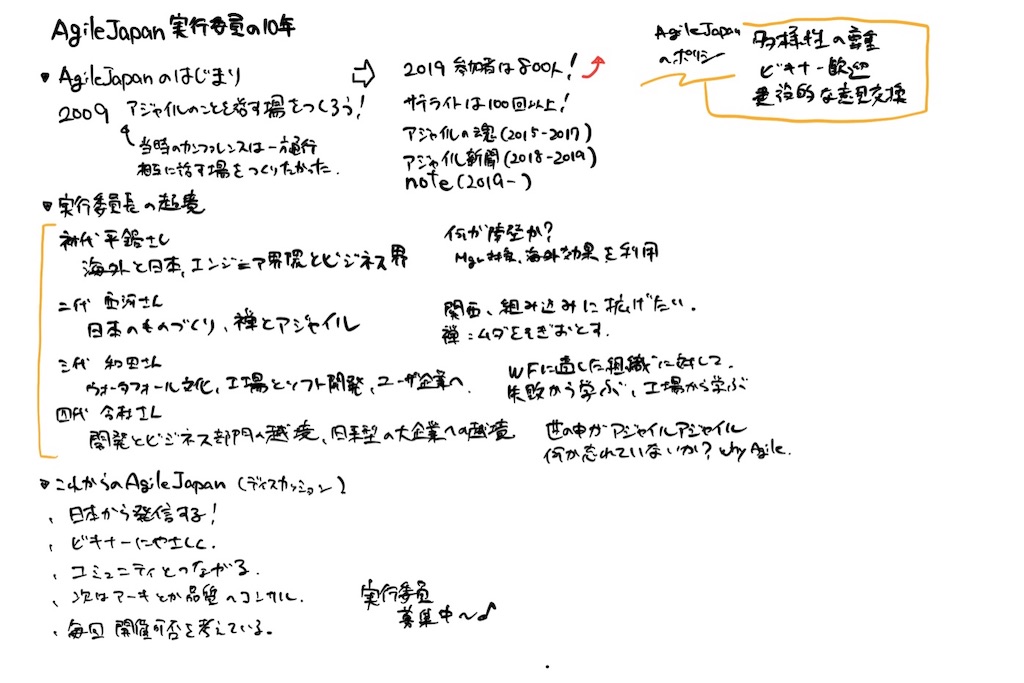 AgileJapan 実行委員の10年
AgileJapanのポリシー
多様性の尊重
ビギナー歓迎
建設的な意見交換
▼ AgileJapanのはじまり
2009 アジャイルのことを話す場をつくろう!
当時のカンファレンスは一方通行
相互に話す場をつくりたかった.
⇨ 2019 参加者は800人!
サテライトは100回以上!
アジャイルの魂(2015-2017)
アジャイル新聞(2018-2019)
note(2019-)
▼ 実行委員長の越境
初代 平鍋さん
海外と日本, エンジニア界隈とビジネス界
何が障壁か?
海外効果を利用
二代 西河さん
日本のものづくり、禅とアジャイル
関西、組み込みに拡げたい.
禅:ムダをそぎおとす.
三代 和田さん
ウォータフォール文化, 工場とソフト開発, ユーザ企業へ.
WFに適した組織に対して.
失敗から学ぶ, 工場から学ぶ
四代 今村さん
開発とビジネス部門の越境, 日本型の大企業への越境
世の中がアジャイルアジャイル
何か忘れていないか? why Agile.
▼ これからのAgileJapan (ディスカッション)
、日本から発信する!
、ビギナーにやさしく.
、コミュニティとつながる.
、次はアーキとか品質へコンサル.
、毎回 開催可否を考えている。
実行委員
募集中〜♪